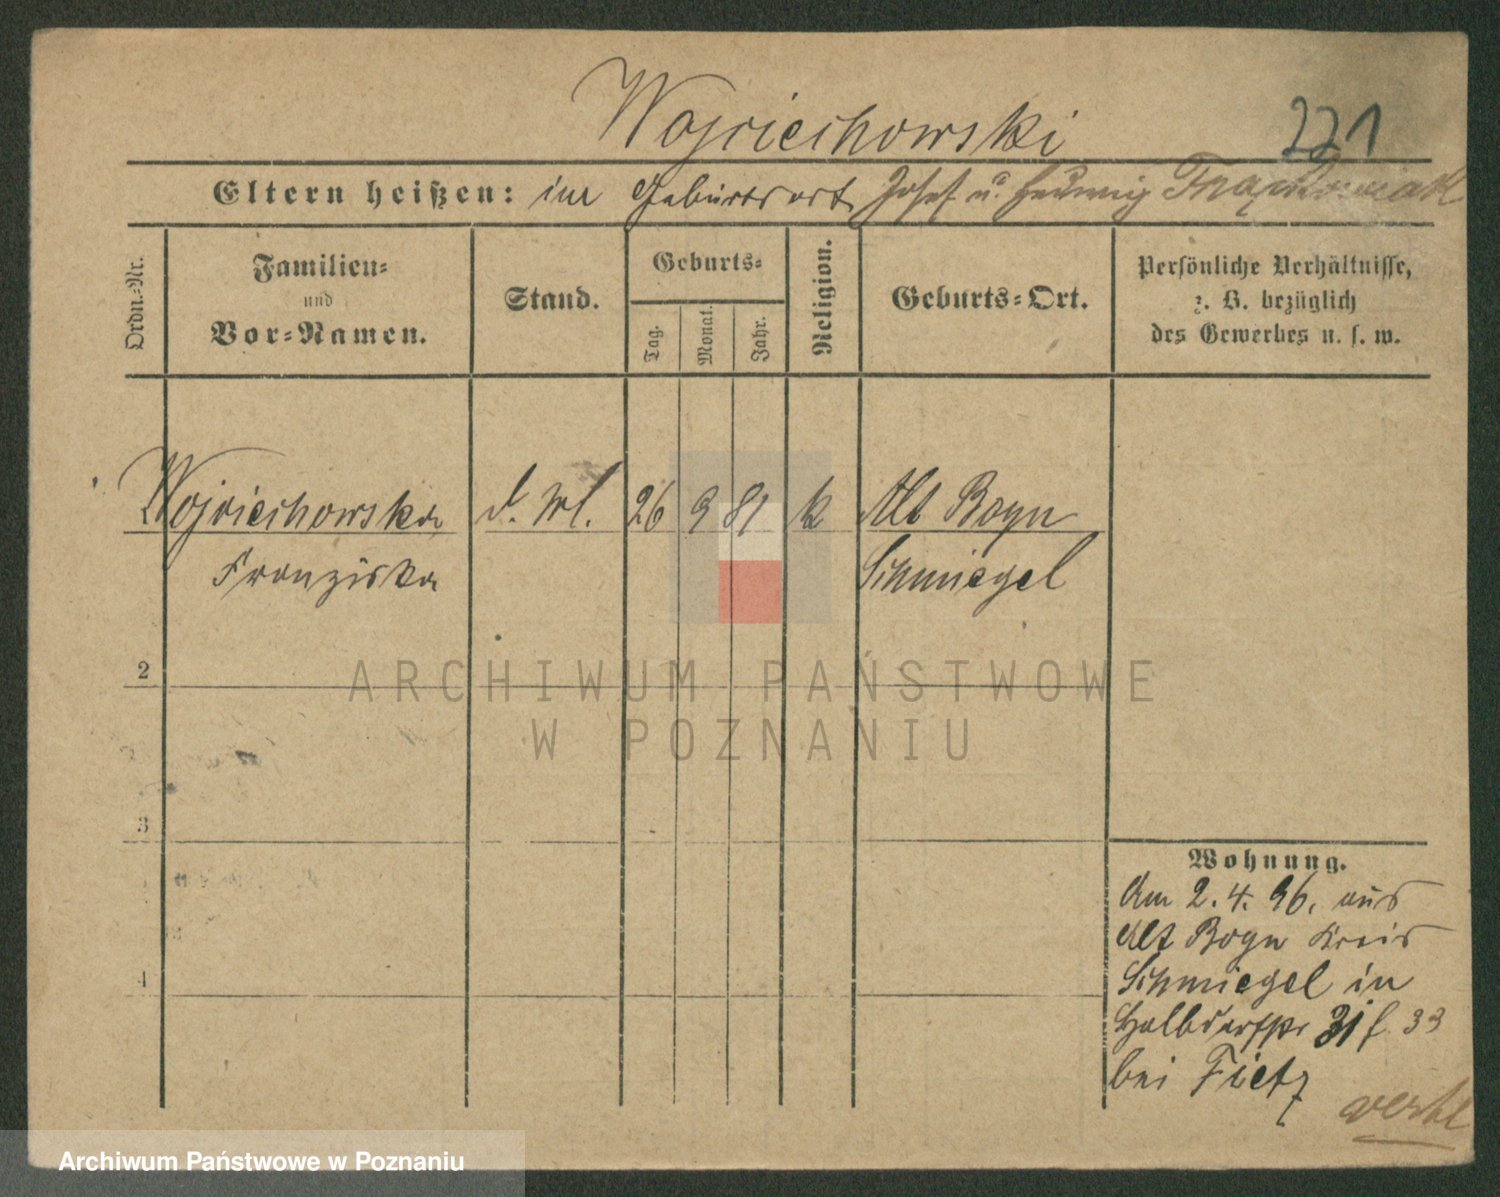 Wojciechowski
221
Eltern heißen: im Geburtsort Josef u. Hedwig
Ordn.-Nr.
Familien-
und
Vor-Namen.
Stand.
Geburts-
Tag.
Monat.
Jahr.
Religion.
Geburts-Ort.
Persönliche Verhältnisse,
z. B. bezüglich
des Gewerbes u. s. w.
Wojciechowska
d. Wl.
26
9
81
k
Alt Boyn
Franziska
Schmiegel
2
ARCHIWUM PAŃSTWOWE
W POZNANIU
3
4
Wohnung.
Am 2. 4. 96. aus
Alt Boyn Kreis
Schmiegel in
Halbdorfstr 31 f 33
bei Fietz
verte
Archiwum Państwowe w Poznaniu